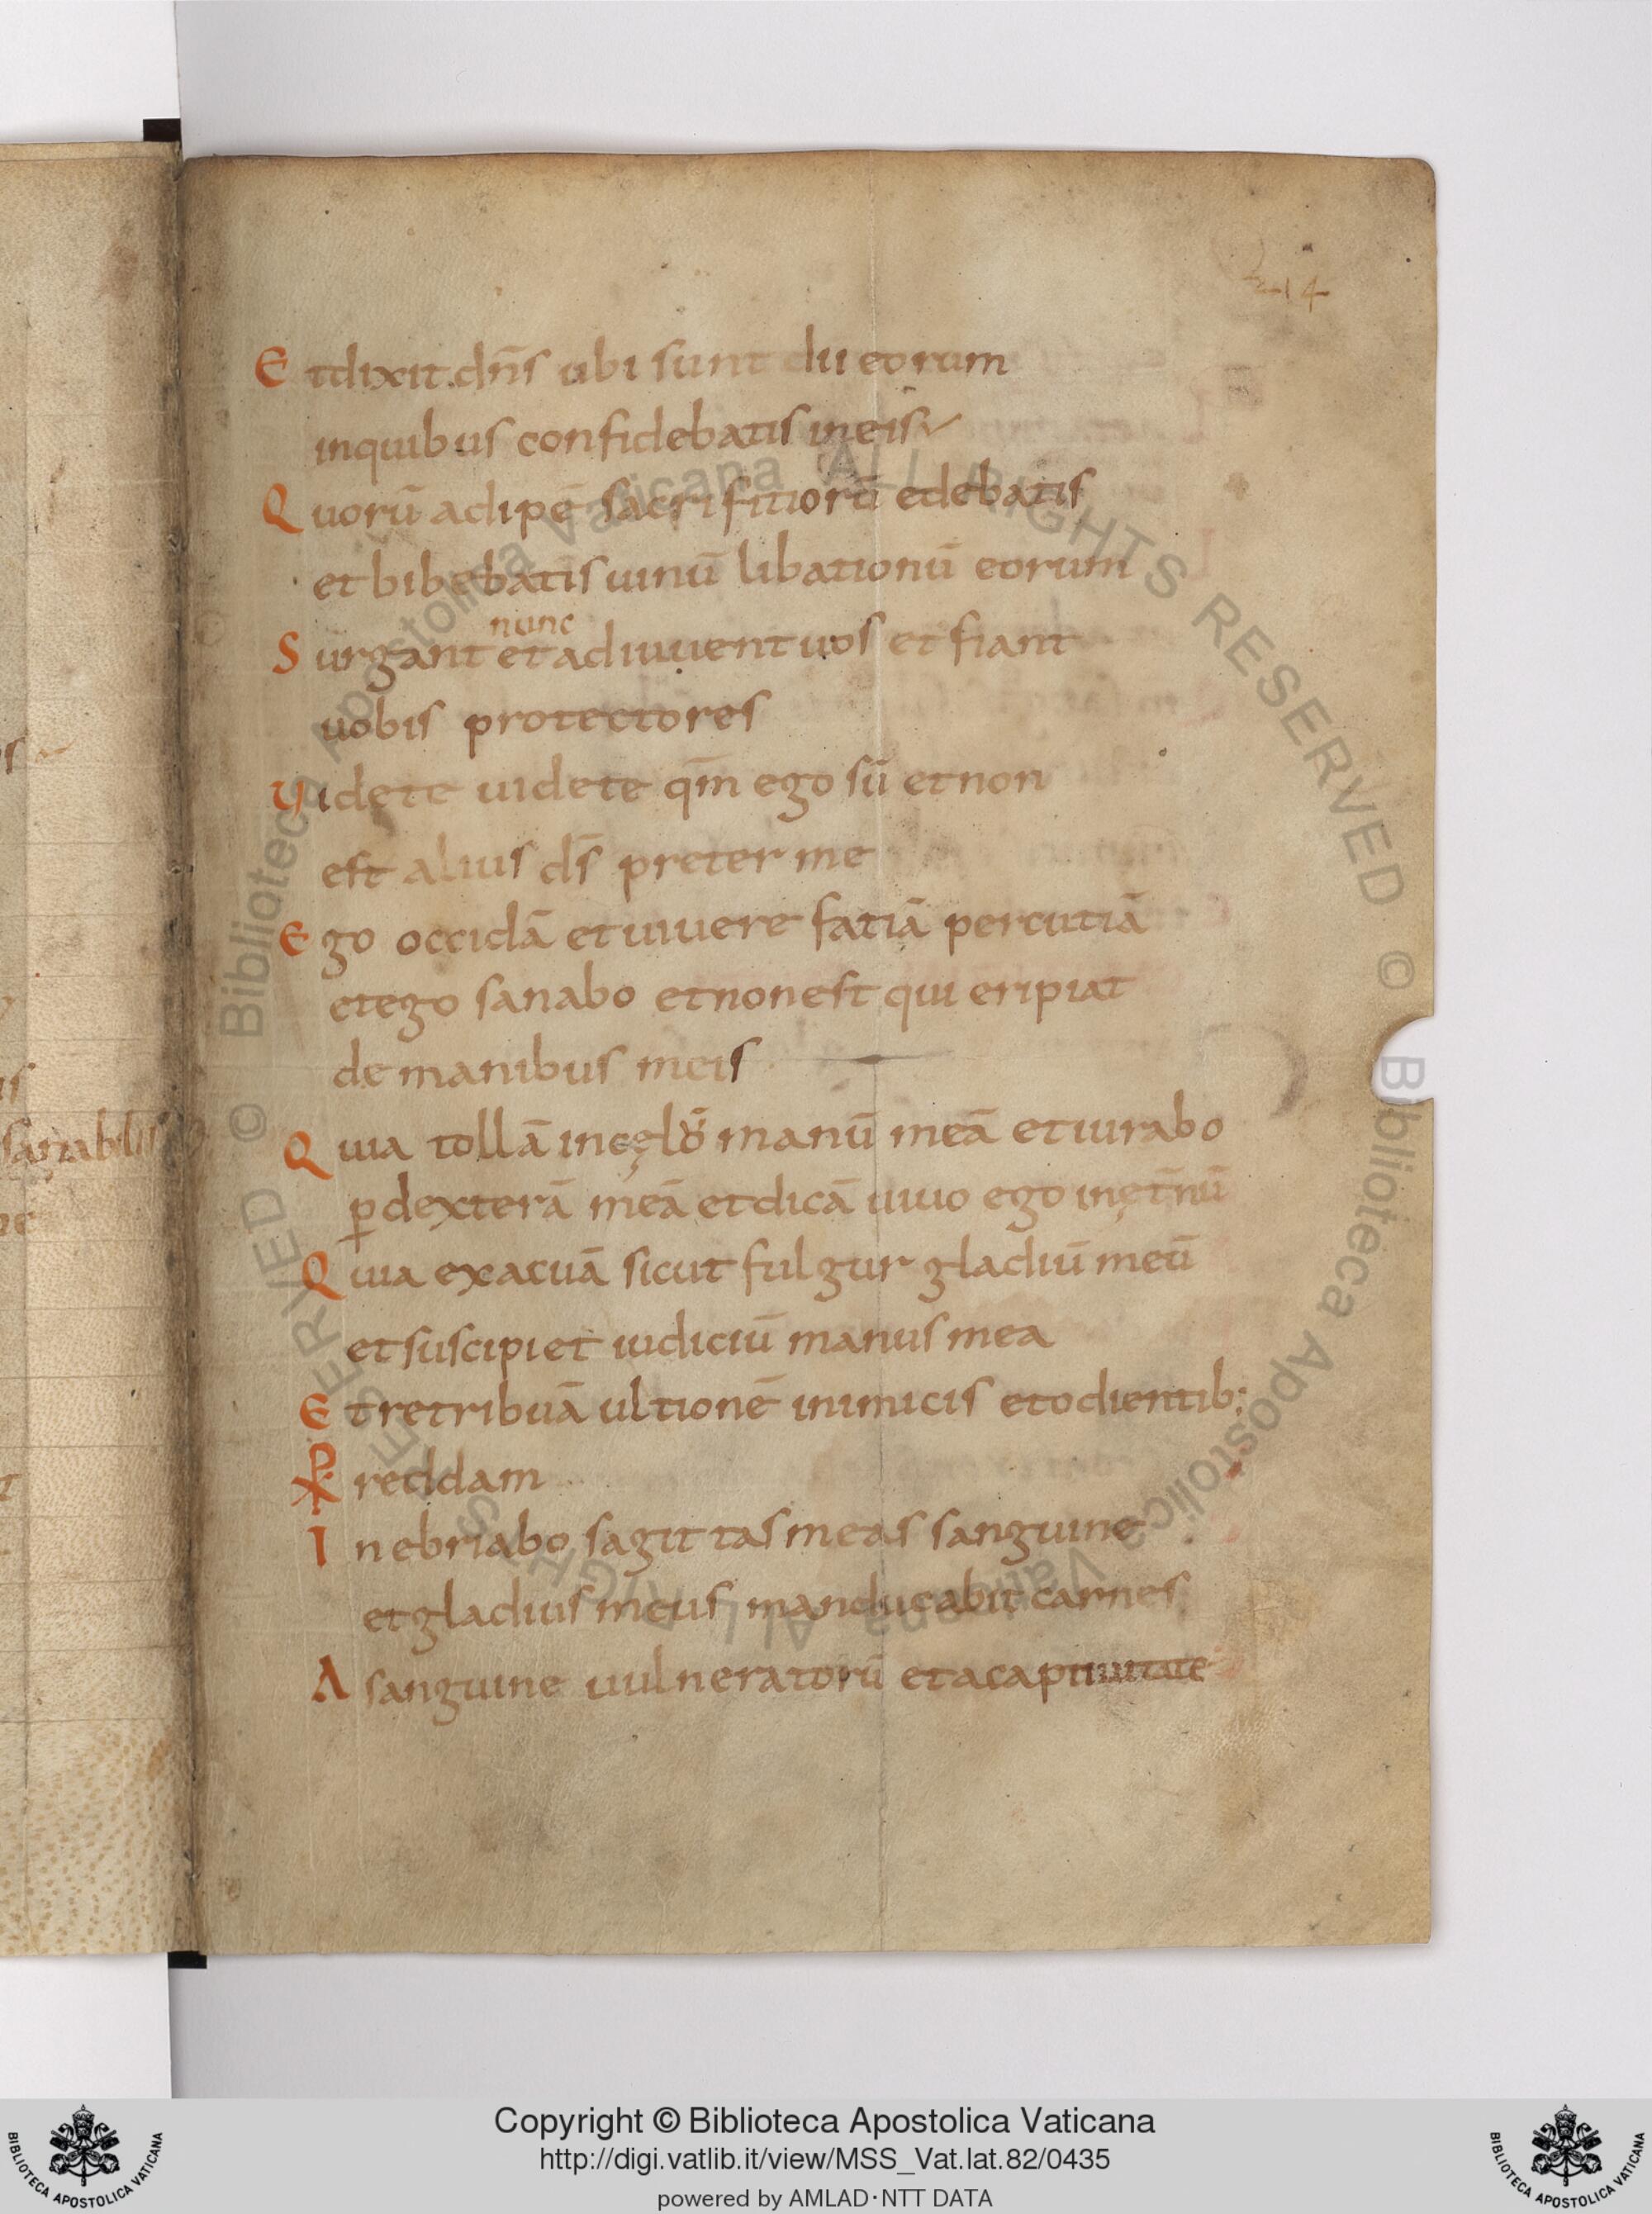 214
Et dixit. dn̄s ubi sunt dii eorum
in quibus confidebatis in eis
Quorū adipē sacrifitiorū edebatis
et bibebatis uinū libationū eorum
nunc
Surgant et adiuuent uos et fiant
uobis protectores
Uidete uidete qm̄ ego sū et non
est alius ds̄ preter me
Ego occidā et uiuere fatiā percutiā
et ego sanabo et non est qui eripiat
de manibus meis
Quia tollā in cęlo manū meā et iurabo
ꝑ dexterā meā et dicā uiuo ego in ęt̄nū
Quia exacuā sicut fulgur gladiū meū
et suscipiet iudiciū manus mea
Et retribuā ultionē inimicis et odientib;
reddam
Inebriabo sagittas meas sanguine
et gladius meus manducabit carnes
A sanguine uulneratorū et a captiuitate
sanabilis
© Biblioteca Apostolica Vaticana ALL RIGHTS RESERVED © Biblioteca Apostolica Vaticana ALL RIGHTS RESERVED
Copyright © Biblioteca Apostolica Vaticana
http://digi.vatlib.it/view/MSS_Vat.lat.82/0435
powered by AMLAD·NTT DATA
BIBLIOTECA APOSTOLICA VATICANA
BIBLIOTECA APOSTOLICA VATICANA